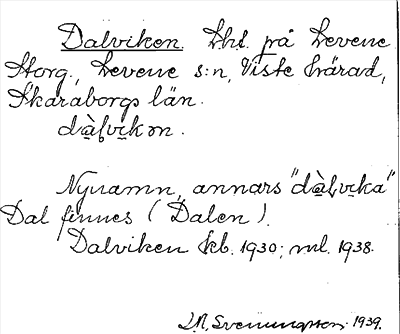 Dalviken. lht. på Levene
Storg., Levene s:n, Viste härad,
Skaraborgs län.
dàlvikən.
Nynamn, annars "dàlvika"
Dal finnes (Dalen).
Dalviken kb. 1930; ml. 1938.
Svenungsson 1939.